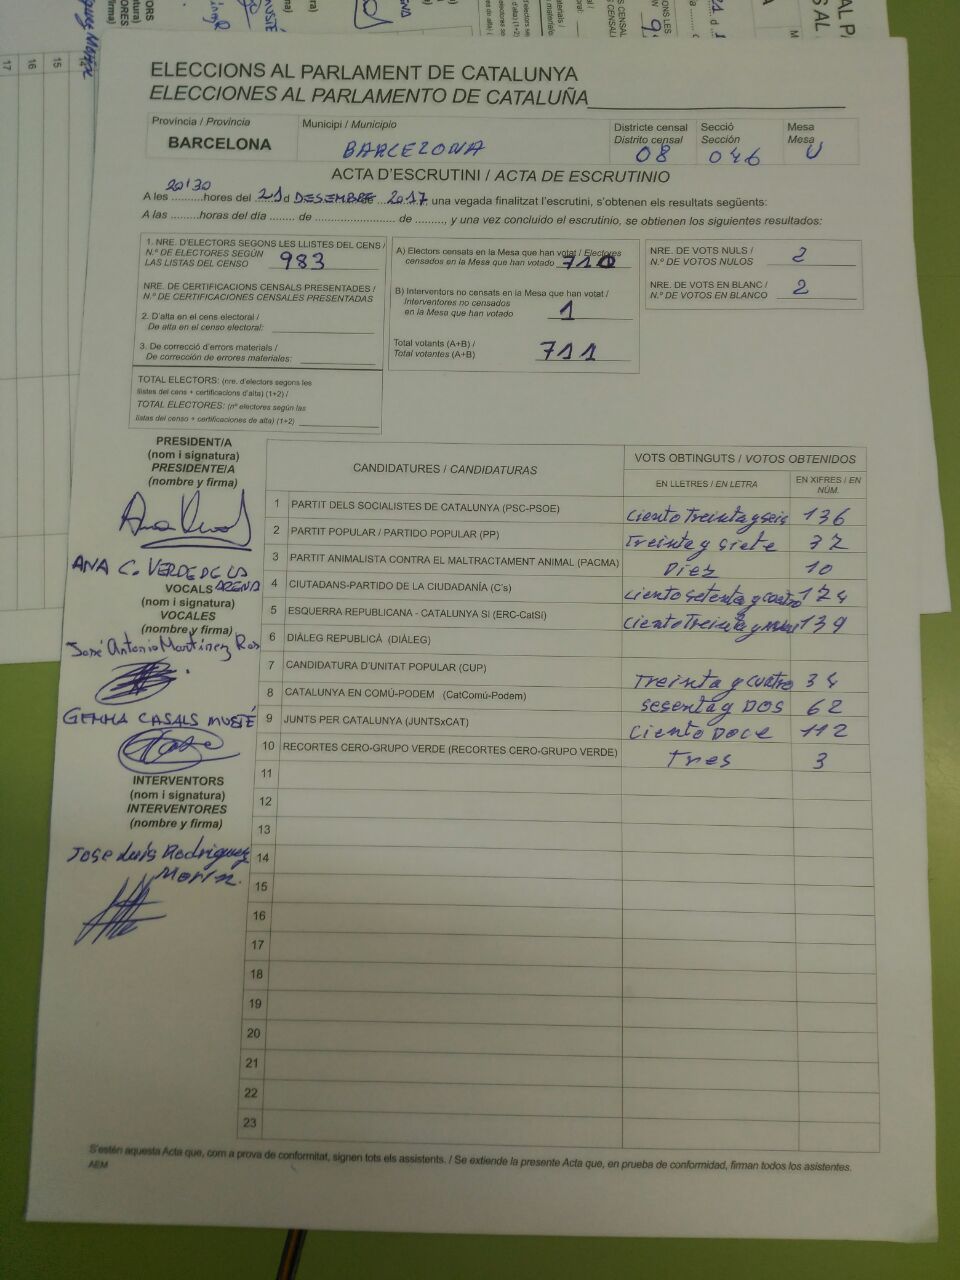 ELECCIONS AL PARLAMENT DE CATALUNYA
ELECCIONES AL PARLAMENTO DE CATALUÑA
Província / Provincia
BARCELONA
Municipi / Municipio
BARCELONA
Districte censal
Distrito censal
08
Secció
Sección
046
Mesa
Mesa
U
ACTA D'ESCRUTINI / ACTA DE ESCRUTINIO
20'30
A les .........hores del 21 d DESEMBRE 2017 una vegada finalitzat l'escrutini, s'obtenen els resultats següents:
A las .........horas del día ........ de ........................ de ........., y una vez concluido el escrutinio, se obtienen los siguientes resultados:
1. NRE. D'ELECTORS SEGONS LES LLISTES DEL CENS /
N.º DE ELECTORES SEGÚN
LAS LISTAS DEL CENSO 983
NRE. DE CERTIFICACIONS CENSALS PRESENTADES /
N.º DE CERTIFICACIONES CENSALES PRESENTADAS
2. D'alta en el cens electoral /
De alta en el censo electoral:
3. De correcció d'errors materials /
De corrección de errores materiales:
TOTAL ELECTORS: (nre. d'electors segons les
llistes del cens + certificacions d'alta) (1+2) /
TOTAL ELECTORES: (nº electores según las
listas del censo + certificaciones de alta) (1+2)
A) Electors censats en la Mesa que han votat / Electores
censados en la Mesa que han votado 710
B) Interventors no censats en la Mesa que han votat /
Interventores no censados
en la Mesa que han votado 1
Total votants (A+B) /
Total votantes (A+B) 711
NRE. DE VOTS NULS /
N.º DE VOTOS NULOS 2
NRE. DE VOTS EN BLANC /
N.º DE VOTOS EN BLANCO 2
PRESIDENT/A
(nom i signatura)
PRESIDENTE/A
(nombre y firma)
ANA C. VERDE DE LA
ARENA
VOCALS
(nom i signatura)
VOCALES
(nombre y firma)
José Antonio Martínez Ros
GEMMA CASALS MUSTÉ
INTERVENTORS
(nom i signatura)
INTERVENTORES
(nombre y firma)
Jose Luis Rodriguez
Morín.
CANDIDATURES / CANDIDATURAS
VOTS OBTINGUTS / VOTOS OBTENIDOS
EN LLETRES / EN LETRA
EN XIFRES / EN
NÚM.
1 PARTIT DELS SOCIALISTES DE CATALUNYA (PSC-PSOE) Ciento Treinta y seis 136
2 PARTIT POPULAR / PARTIDO POPULAR (PP) Treinta y Siete 37
3 PARTIT ANIMALISTA CONTRA EL MALTRACTAMENT ANIMAL (PACMA) Diez 10
4 CIUTADANS-PARTIDO DE LA CIUDADANÍA (C's) Ciento Setenta y Cuatro 174
5 ESQUERRA REPUBLICANA - CATALUNYA SI (ERC-CatSí) Ciento Treinta y Nueve 139
6 DIÀLEG REPUBLICÀ (DIÀLEG)
7 CANDIDATURA D'UNITAT POPULAR (CUP) Treinta y Cuatro 34
8 CATALUNYA EN COMÚ-PODEM (CatComú-Podem) Sesenta y DOS 62
9 JUNTS PER CATALUNYA (JUNTSxCAT) Ciento Doce 112
10 RECORTES CERO-GRUPO VERDE (RECORTES CERO-GRUPO VERDE) Tres 3
11
12
13
14
15
16
17
18
19
20
21
22
23
S'estén aquesta Acta que, com a prova de conformitat, signen tots els assistents. / Se extiende la presente Acta que, en prueba de conformidad, firman todos los asistentes.
AEM